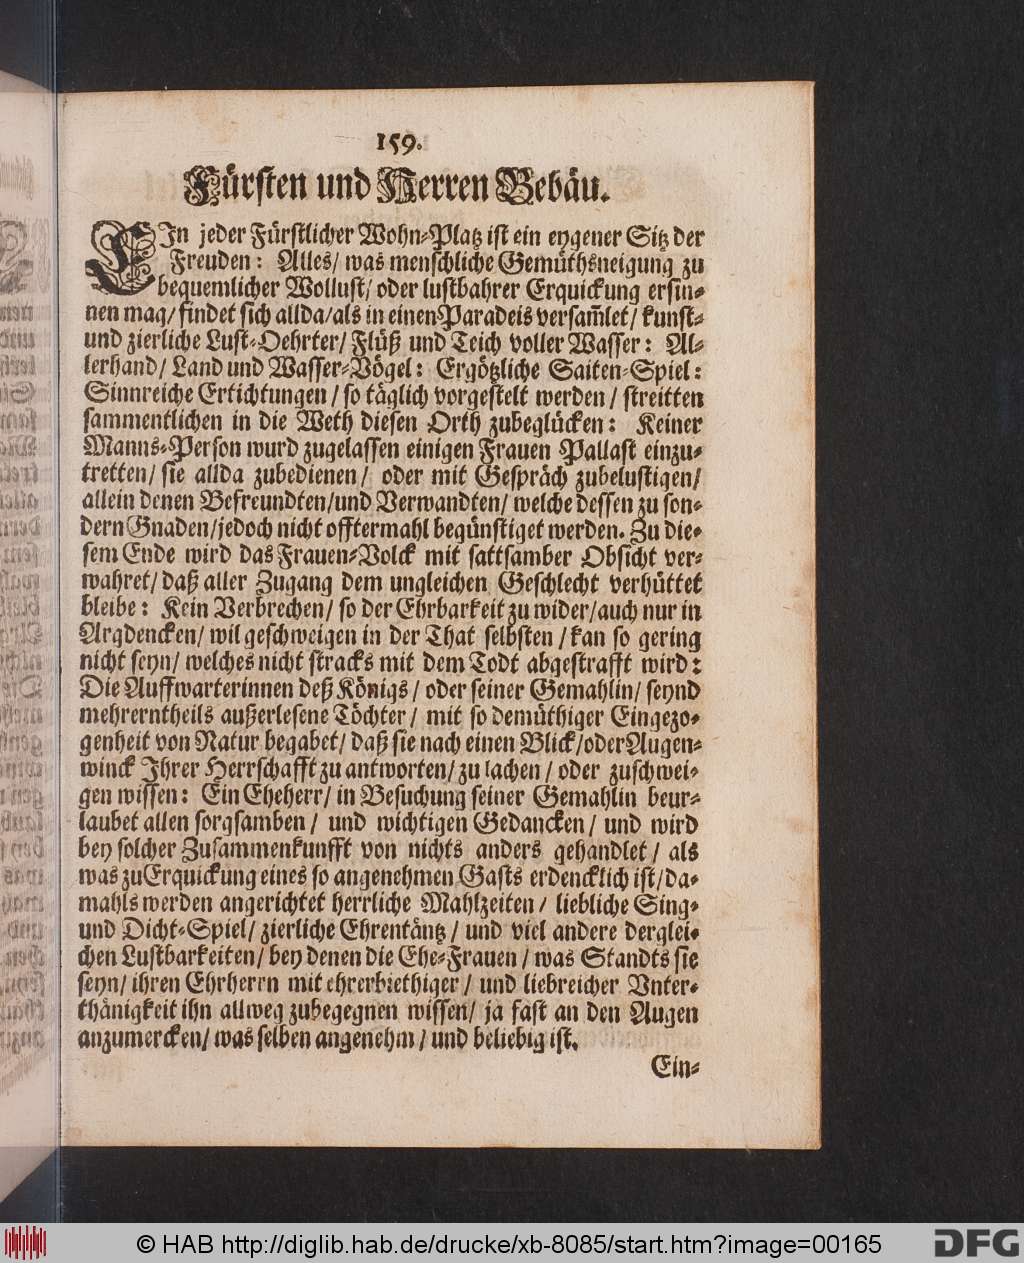 159.
Fürsten und Herren Gebäu.
EIn jeder Fürstlicher Wohn-Platz ist ein eygener Sitz der
Freuden: Alles/ was menschliche Gemüthsneigung zu
bequemlicher Wollust/ oder lustbahrer Erquickung ersin-
nen mag/ findet sich allda/als in einen Paradeis versam̃let/ kunst-
und zierliche Lust-Oehrter/ Flüß und Teich voller Wasser: Al-
lerhand/ Land und Wasser-Vögel: Ergötzliche Saiten-Spiel:
Sinnreiche Ertichtungen/ so täglich vorgestelt werden/ streitten
sammentlichen in die Weth diesen Orth zubeglücken: Keiner
Manns-Person wurd zugelassen einigen Frauen Pallast einzu-
tretten/ sie allda zubedienen/ oder mit Gespräch zubelustigen/
allein denen Befreundten/und Verwandten/ welche dessen zu son-
dern Gnaden/jedoch nicht offtermahl begünstiget werden. Zu die-
sem Ende wird das Frauen-Volck mit sattsamber Obsicht ver-
wahret/ daß aller Zugang dem ungleichen Geschlecht verhüttet
bleibe: Kein Verbrechen/ so der Ehrbarkeit zu wider/auch nur in
Argdencken/ wil geschweigen in der That selbsten/kan so gering
nicht seyn/ welches nicht stracks mit dem Todt abgestrafft wird:
Die Auffwarterinnen deß Königs/ oder seiner Gemahlin/ seynd
mehrerntheils außerlesene Töchter/ mit so demüthiger Eingezo-
genheit von Natur begabet/ daß sie nach einen Blick/oder Augen-
winck Ihrer Herrschafft zu antworten/ zu lachen/ oder zuschwei-
gen wissen: Ein Eheherr/ in Besuchung seiner Gemahlin beur-
laubet allen sorgsamben/ und wichtigen Gedancken/ und wird
bey solcher Zusammenkunfft von nichts anders gehandlet/ als
was zu Erquickung eines so angenehmen Gasts erdencklich ist/da-
mahls werden angerichtet herrliche Mahlzeiten/ liebliche Sing-
und Dicht-Spiel/ zierliche Ehrentäntz/ und viel andere derglei-
chen Lustbarkeiten/ bey denen die Ehe-Frauen/ was Standts sie
seyn/ ihren Ehrherrn mit ehrerbiethiger/ und liebreicher Unter-
thänigkeit ihn allweg zubegegnen wissen/ ja fast an den Augen
anzumercken/ was selben angenehm/ und beliebig ist.
Ein-
© HAB http://diglib.hab.de/drucke/xb-8085/start.htm?image=00165
DFG